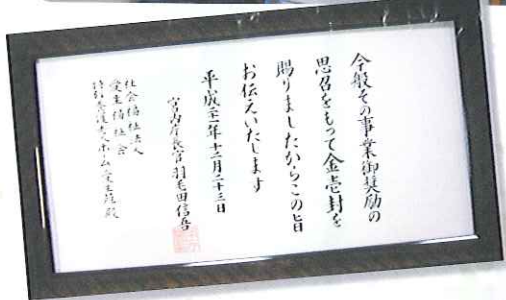 今般その事業御奨励の
思召をもって金壱封を
賜りましたからこの旨
お伝えいたします
平成二十一年十二月二十三日
宮内庁長官羽毛田信吾
社会福祉法人
愛生福祉会
特別養護老人ホーム愛生苑殿